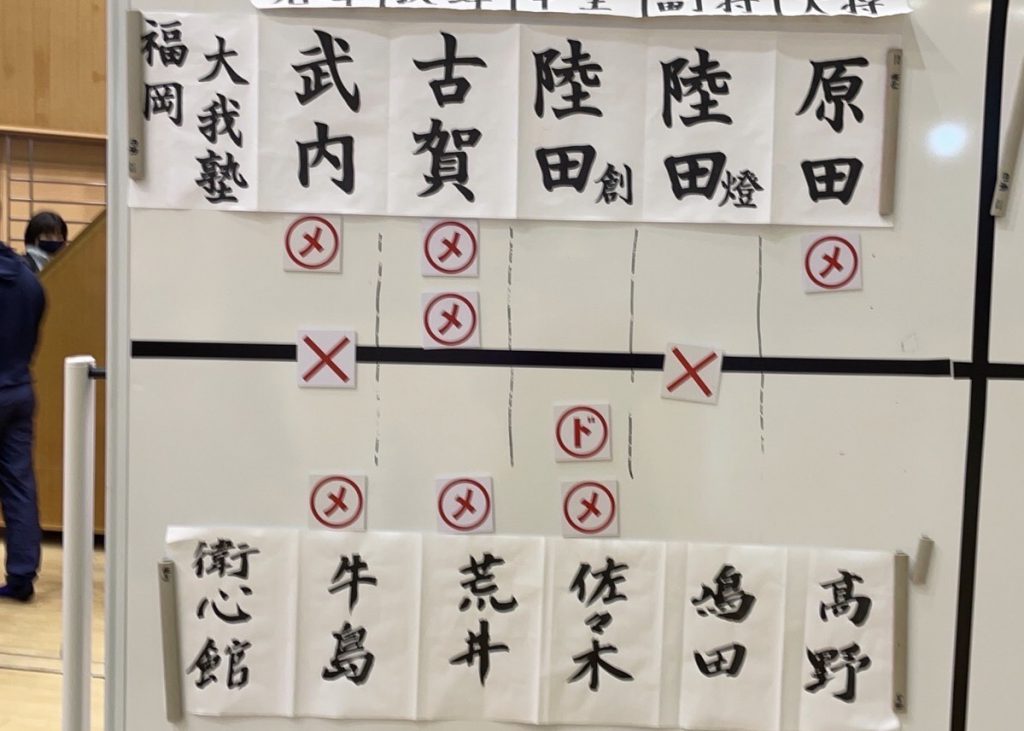 福岡
大我塾
武内
古賀
陸田創
陸田燈
原田
メ
メ
メ
メ
×
×
ド
メ
メ
メ
衛心館
牛島
荒井
佐々木
嶋田
髙野